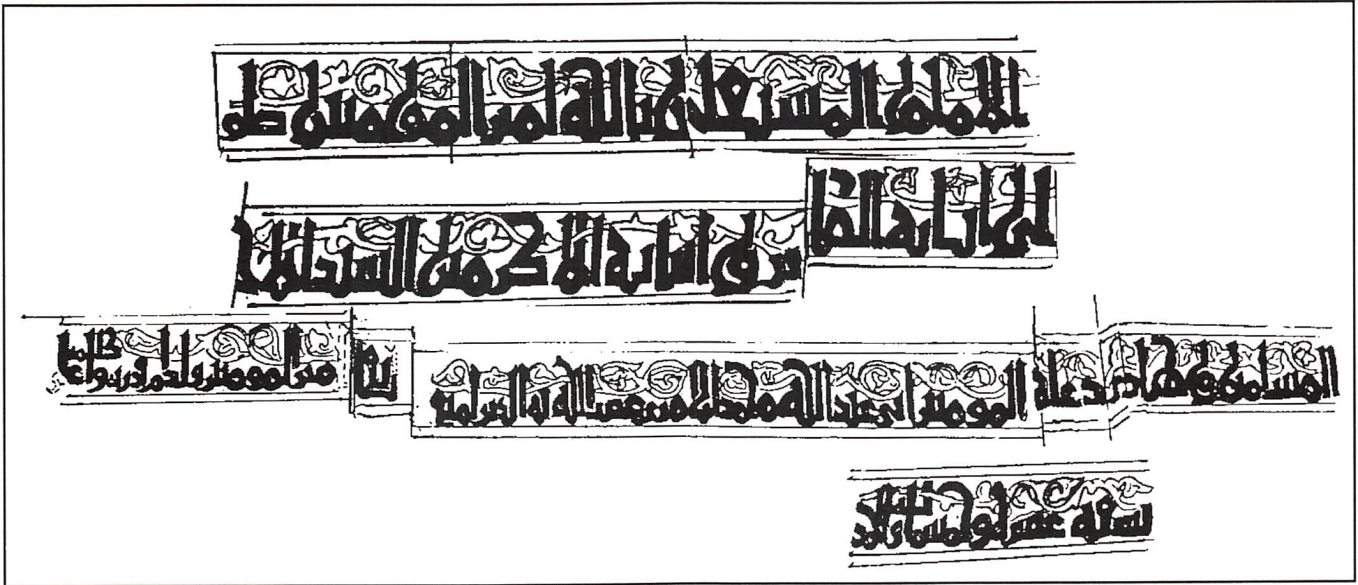 الامام المستعلى بالله امير المومنين صلو
لى ابائه الطا
هرين وابنائه الاكرمين السيد الاجل الما
المسلمين وهادى دعاة المومنين ابى عبد الله محمد الامرى عضد الله به الدين وامتع بقا مير المومنين وادام قدرته واعلا
سنة عشر وخمسمائة الحمد